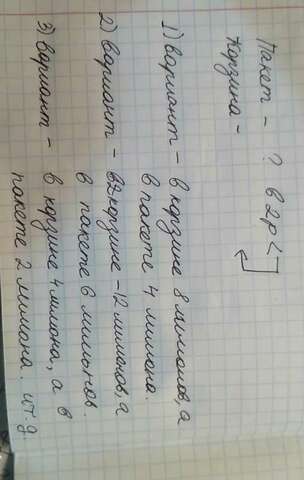 Пакет - ? в 2 р <
Корзина -
1) вариант - в корзине 8 лимонов, а
в пакете 4 лимона.
2) вариант - в корзине - 12 лимонов, а
в пакете 6 лимонов.
3) вариант - в корзине 4 лимона, а в
пакете 2 лимона. и т. д.